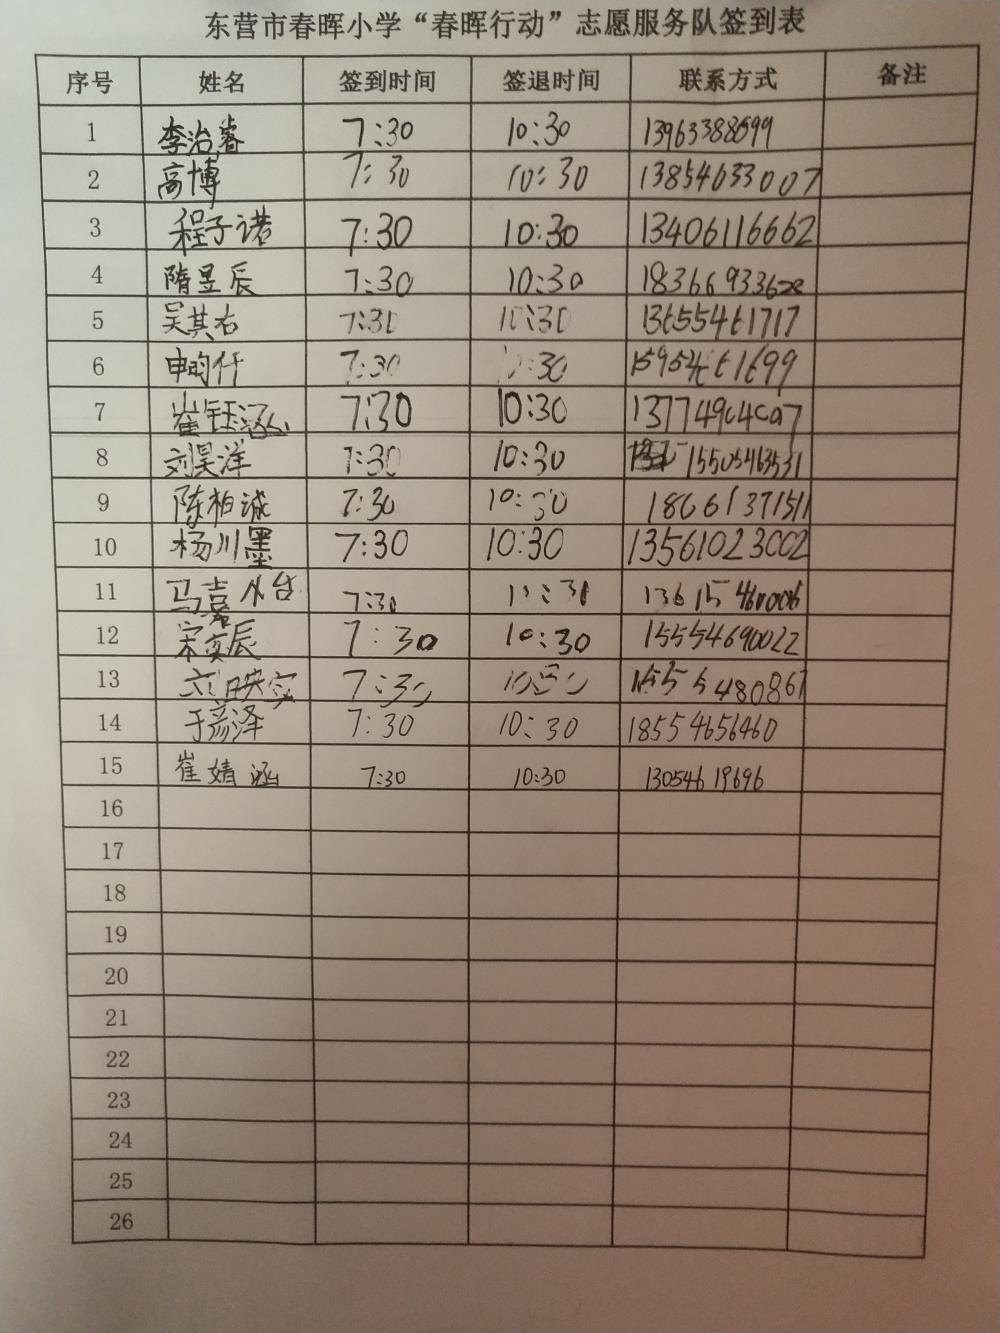 东营市春晖小学“春晖行动”志愿服务队签到表
序号 姓名 签到时间 签退时间 联系方式 备注
1 李治睿 7:30 10:30
2 高博 7:30 10:30 13854633007
3 程子诺 7:30 10:30 13406116662
4 隋昱辰 7:30 10:30
5 吴其右 7:30 10:30 13655461717
6 申昀仟 7:30 10:30
7 崔钰涵 7:30 10:30
8 刘昊洋 7:30 10:30 15505463531
9 陈柏诚 7:30 10:30 18661371511
10 杨川墨 7:30 10:30 13561023002
11 马嘉 7:30 13615460006
12 宋奕辰 7:30 10:30 15554690022
13 7:30 10:30 15554480867
14 于彦泽 7:30 10:30 18554656460
15 崔婧涵 7:30 10:30 13054619696
16
17
18
19
20
21
22
23
24
25
26